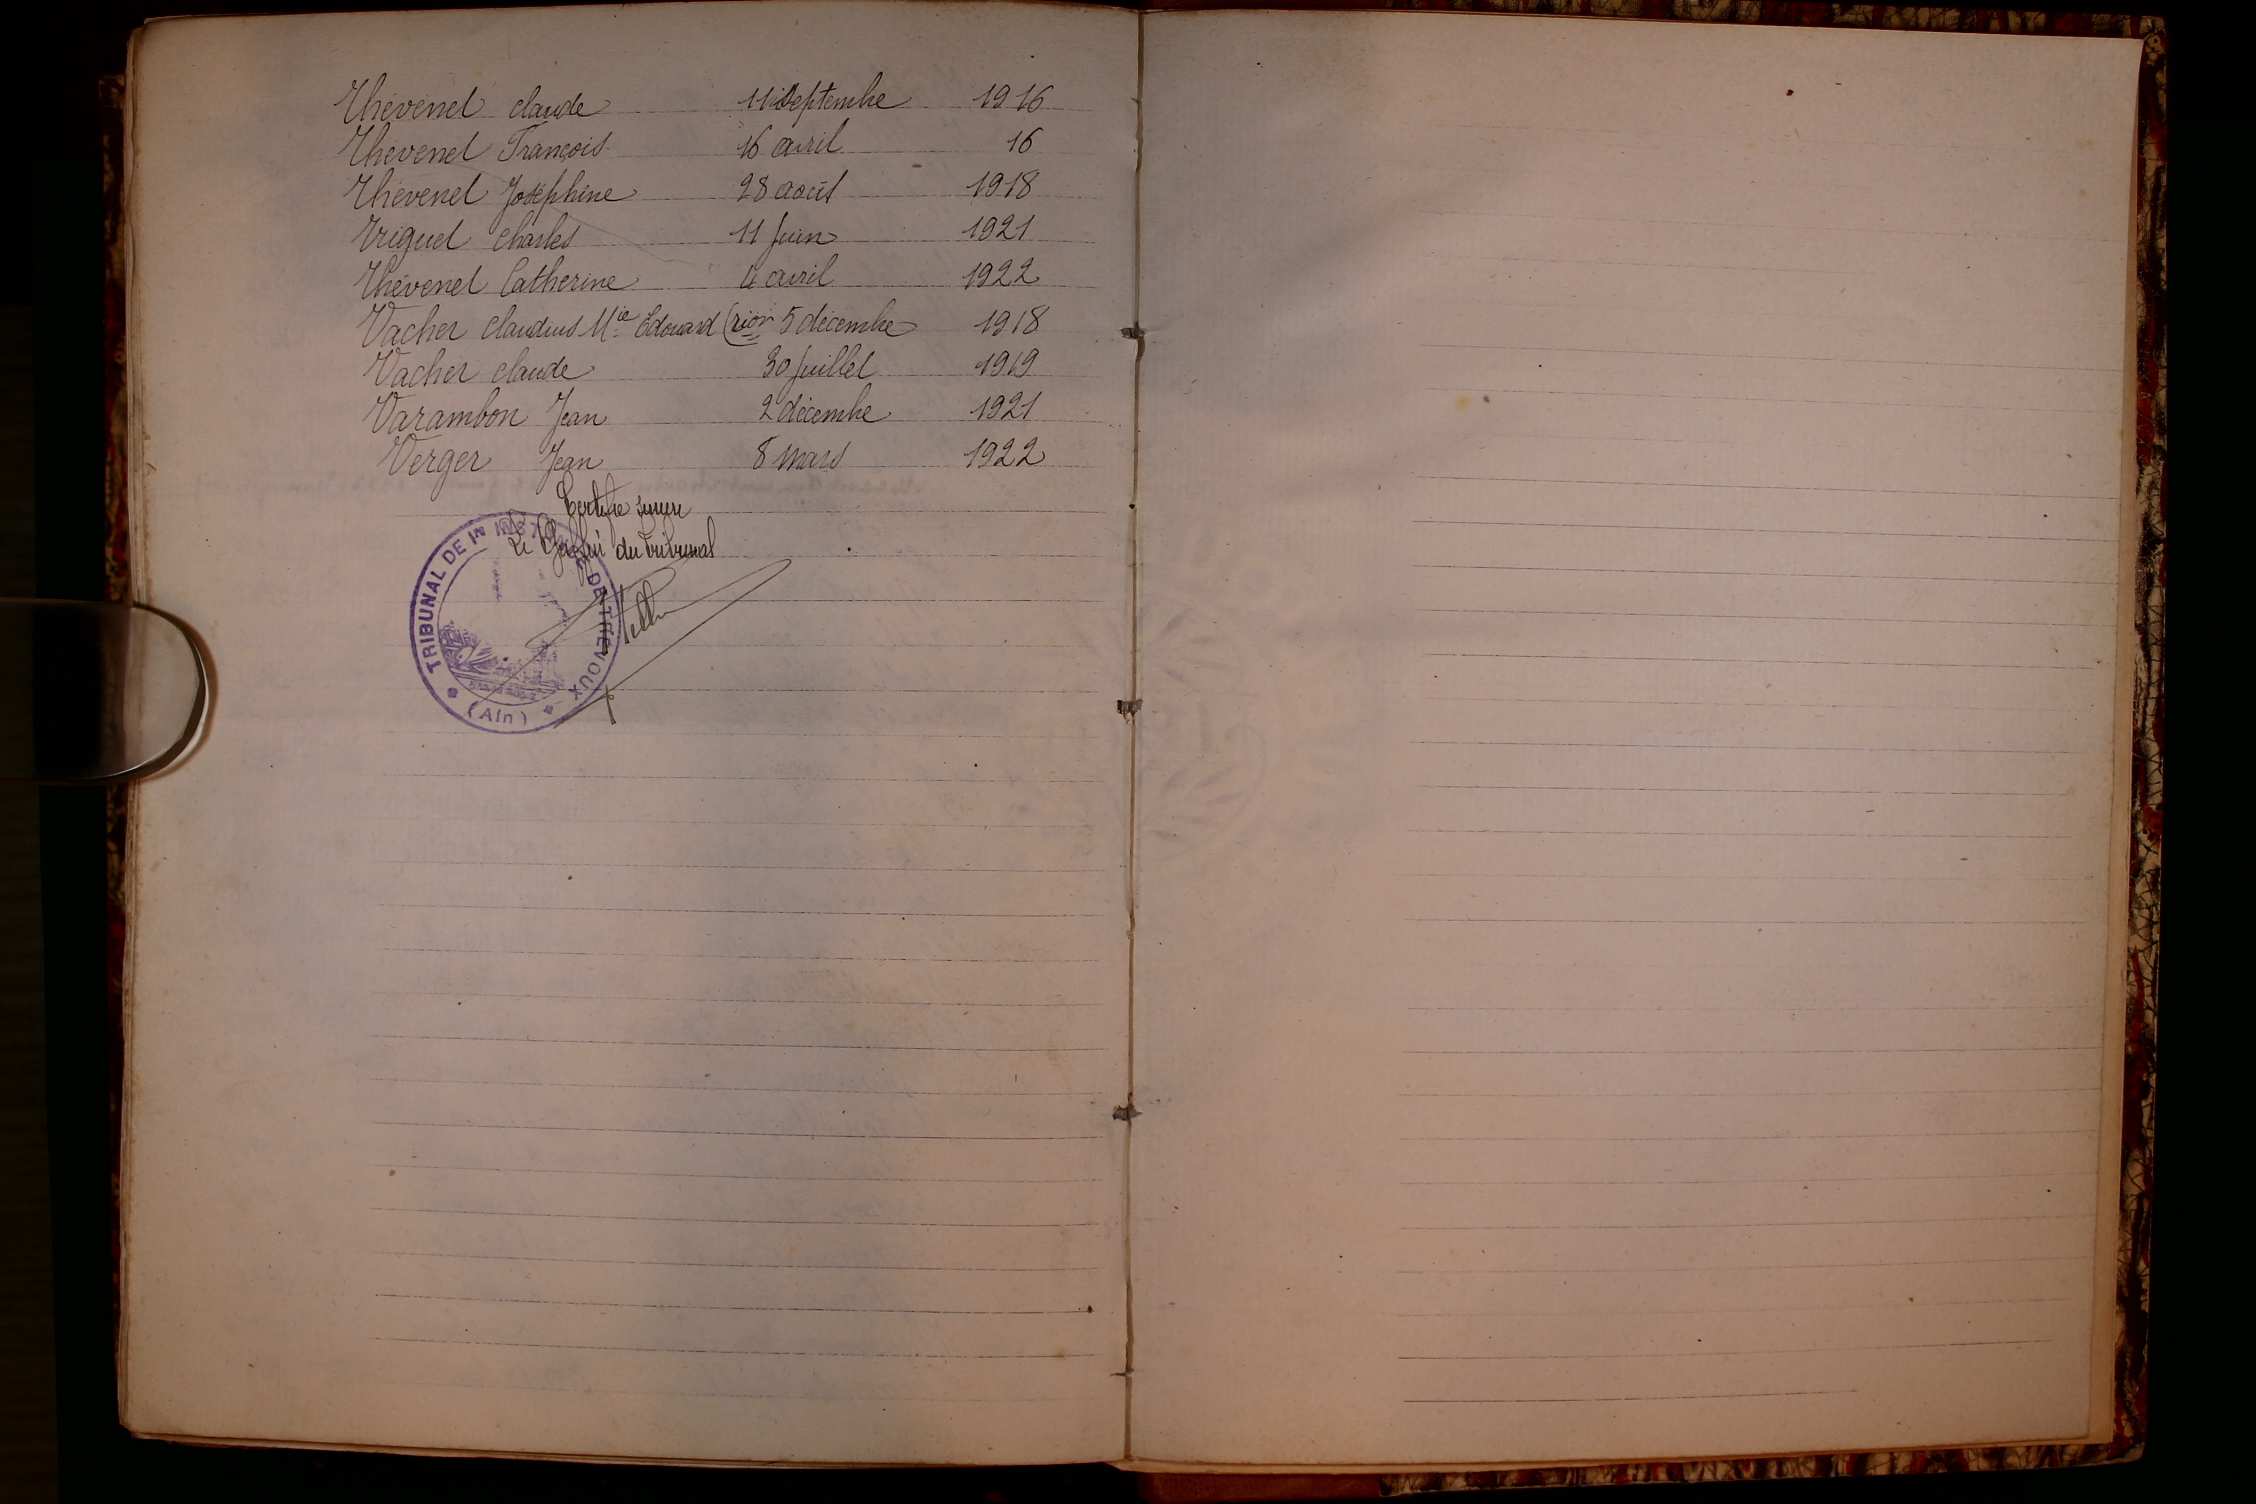 Thévenet claude 11 Septembre 1916
Thévenet François 16 avril 16
Thévenet Joséphine 28 août 1918
Triguet Charles 11 Juin 1921
Thévenet Catherine 4 avril 1922
Vacher claudius Mie Edouard 5 décembre 1918
Vacher claude 30 Juillet 1919
Varambon Jean 2 décembre 1921
Verger Jean 8 mars 1922
Certifié sincère
Le Greffier du Tribunal
TRIBUNAL DE 1re INSTANCE DE TREVOUX
(Ain)